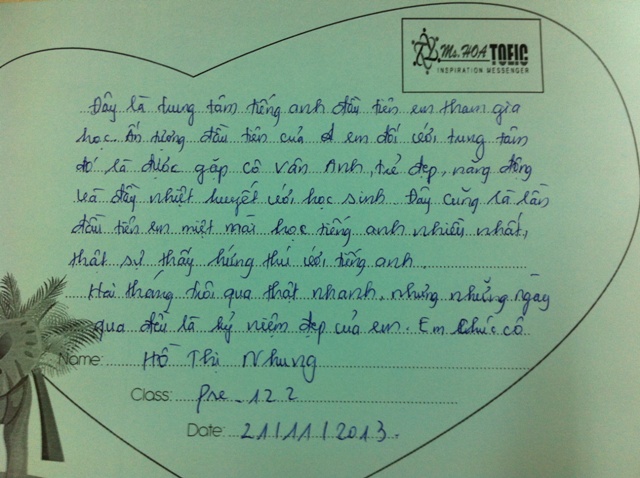 Ms. HOA TOEIC
INSPIRATION MESSENGER
Đây là trung tâm tiếng anh đầu tiên em tham gia
học. Ấn tượng đầu tiên của em đối với trung tâm
đó là được gặp cô Vân Anh, trẻ đẹp, năng động
và đầy nhiệt huyết với học sinh. Đây cũng là lần
đầu tiên em miệt mài học tiếng anh nhiều nhất,
thật sự thấy hứng thú với tiếng anh.
Hai tháng trôi qua thật nhanh, nhưng những ngày
qua đều là kỷ niệm đẹp của em. Em chúc cô
Name: Hồ Thị Nhung
Class: Pre - 122
Date: 21/11/2013.